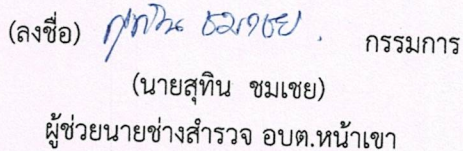 (ลงชื่อ) สุทิน ชมเชย. กรรมการ
(นายสุทิน ชมเชย)
ผู้ช่วยนายช่างสำรวจ อบต.หน้าเขา